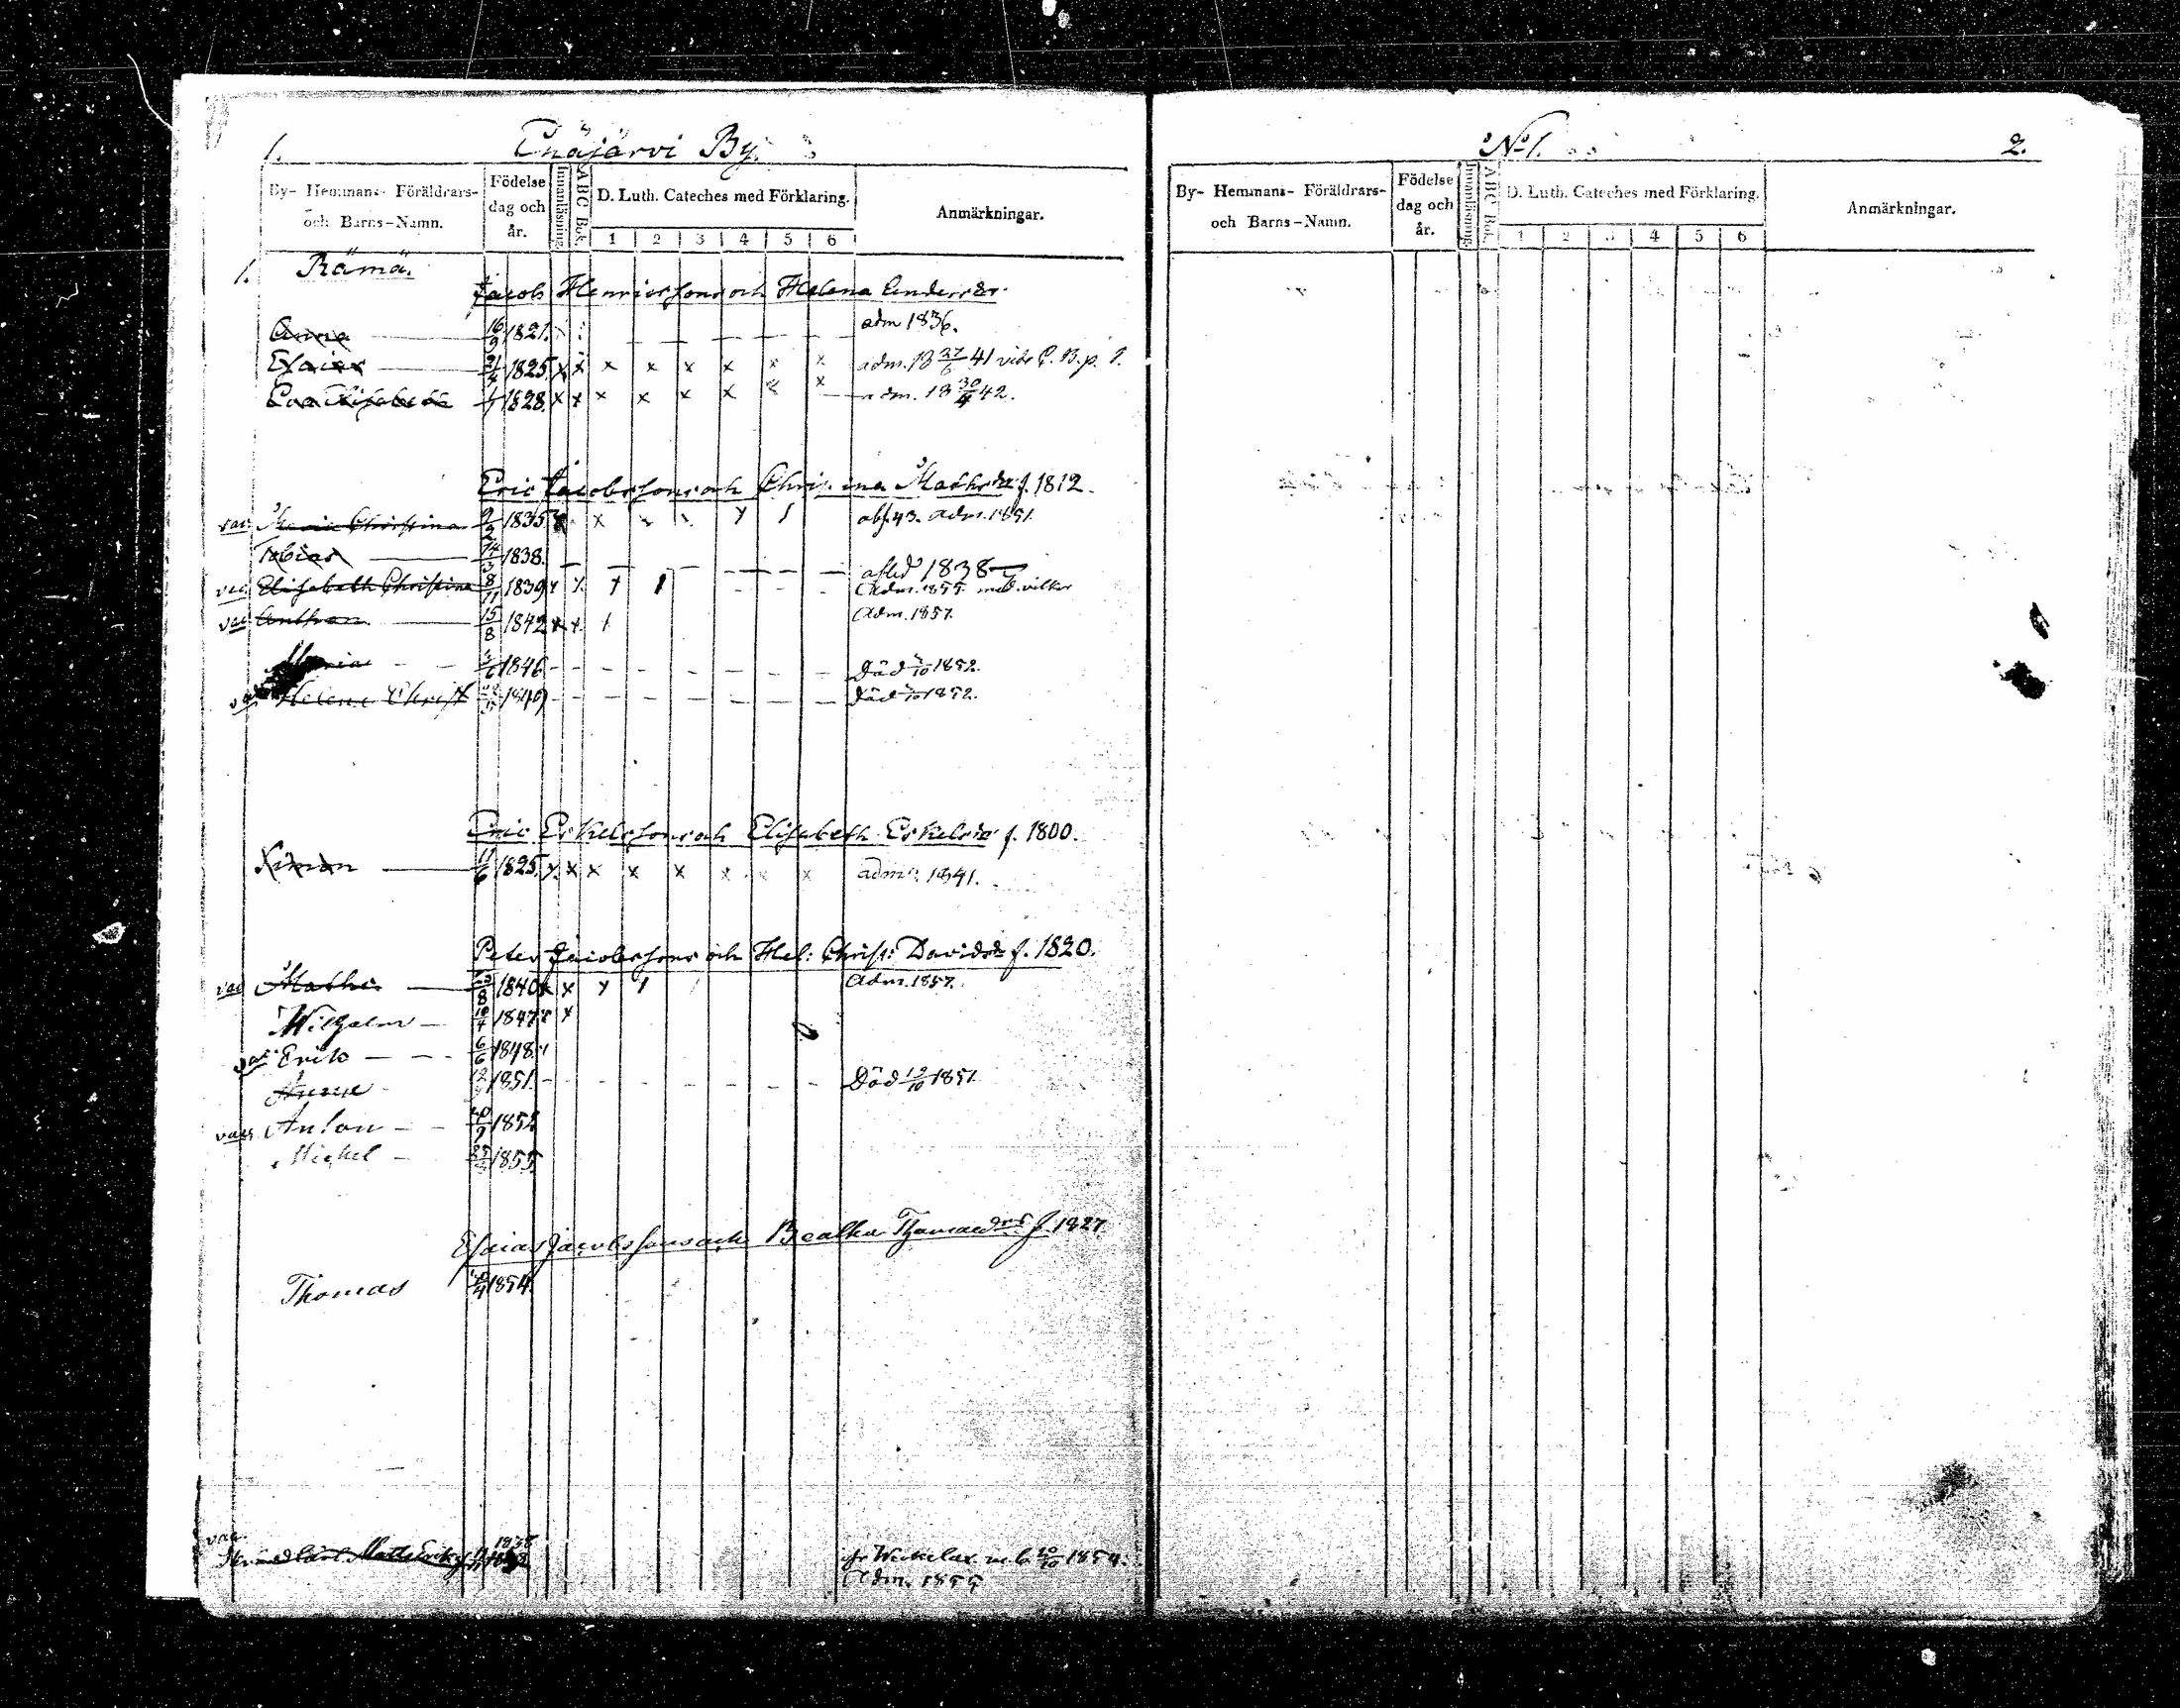 1.
Enäjärvi By.
By- Hemmans- Föräldrars- och Barns-Namn.
Födelse dag och år.
Innanläsning.
ABC Bok.
D. Luth. Cateches med Förklaring.
1 2 3 4 5 6
Anmärkningar.
1. Rämä.
Jacob Henricssons och Helena Endersdr
Anna 16/9 1821. adm 1836.
Esaias 21/4 1825. x x x x x x x x adm. 18 27/6 41 vide C. B. p. 1.
Eva Elisabeth 1828. x x x x x x x x adm. 18 30/4 42.
Eric Jacobssons och Christina Mathsdr f. 1812.
vac Maria Christina 9/2 1835 abs. 43. adm. 1851.
Tobias 14/3 1838. afled 1838
vac Elisabeth Christina 8/11 1839 Adm. 1855 med vilkor
vac 15/8 1842 x x Adm. 1857.
Maria 1846 Död /10 1852.
vac Helena Christ 1849 Död /10 1852.
Eric Erkelssons och Elisabeth Erkelsdr f. 1800.
Simon 11/6 1825. x x x x x x x x adm. 1841.
Peter Jacobssons och Hel: Christ: Davidsdr f. 1820.
vac Mathis /8 1840 Adm. 1857.
Wilhelm 10/4 1847
vac Erik 6/6 1848
Anna 1851. Död 12/10 1851
vac Anton /9 1852
Mickel 1855.
Esaias Jacobssons och Beatha Thomasdr f. 1827
Thomas 1854.
vac. Matts Eriks 1838 fr Weckelax m. b. 1854.
Adm. 1855
No 1.
2.
By- Hemmans- Föräldrars- och Barns-Namn.
Födelse dag och år.
Innanläsning.
ABC Bok.
D. Luth. Cateches med Förklaring.
1 2 3 4 5 6
Anmärkningar.